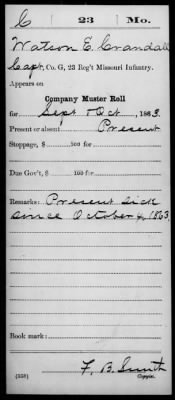 C 23 Mo.
Watson E. Crandall
Capt, Co. G, 23 Reg't Missouri Infantry.
Appears on
Company Muster Roll
for Sept & Oct, 1863.
Present or absent Present
Stoppage, $ 100 for
Due Gov't, $ 100 for
Remarks: Present sick
since October 4, 1863
Book mark:
F. B. Smith
(358) Copyist.